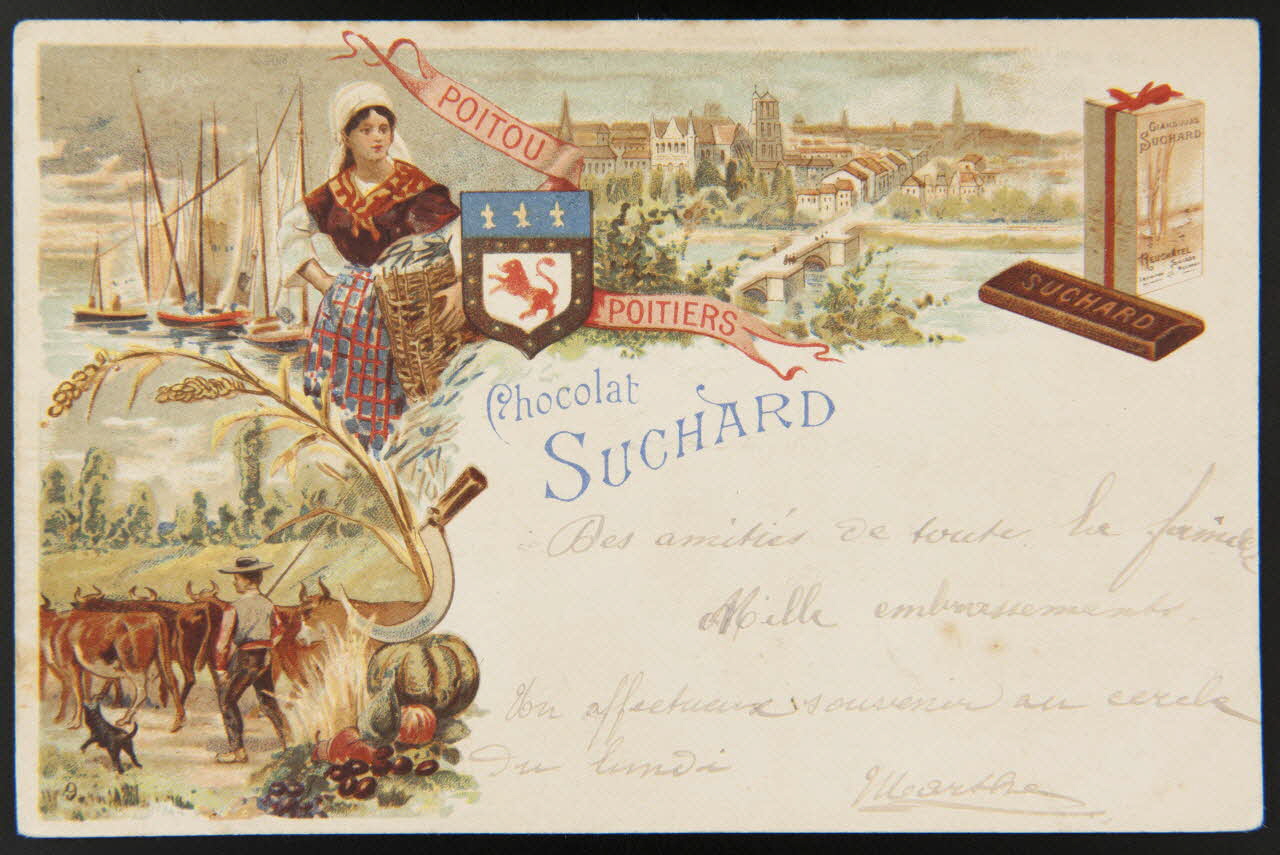 POITOU
POITIERS
GIANDUJAS
SUCHARD
NEUCHÂTEL
SUCHARD
Chocolat
SUCHARD
Des amitiés de toute la famille
Mille embrassements.
Un affectueux souvenir au cercle
du lundi
Marthe